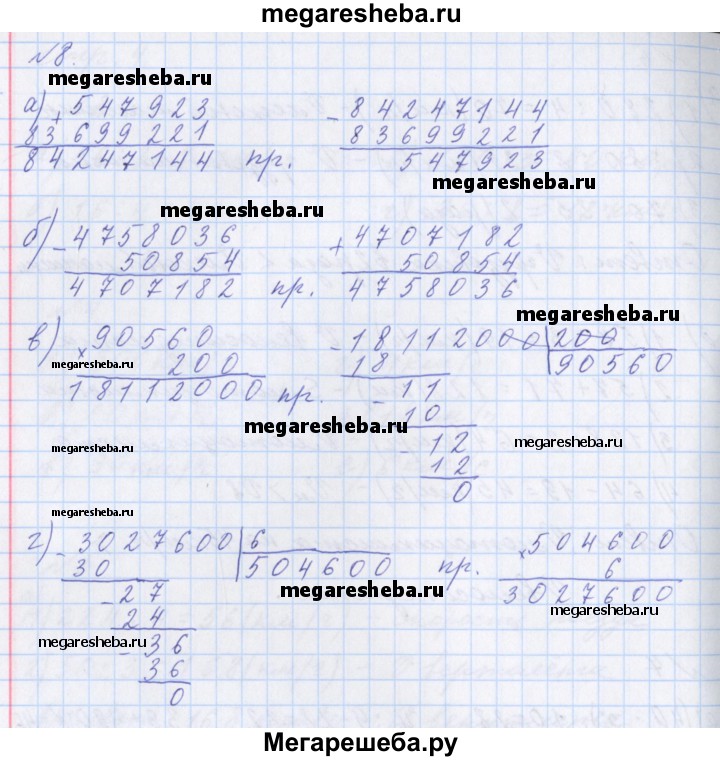 megaresheba.ru
№8.
megaresheba.ru
а) + 547923
83699221
84247144 пр.
- 84247144
83699221
547923
megaresheba.ru
megaresheba.ru
б) - 4758036
50854
4707182 пр.
+ 4707182
50854
4758036
megaresheba.ru
в) × 90560
200
18112000 пр.
megaresheba.ru
- 18112000 | 200
18 90560
- 11
10
- 12
12
0
megaresheba.ru
megaresheba.ru
megaresheba.ru
megaresheba.ru
г) - 3027600 | 6
30 504600
- 27
24
- 36
36
0
пр. × 504600
6
3027600
megaresheba.ru
megaresheba.ru
megaresheba.ru
Мегарешеба.ру